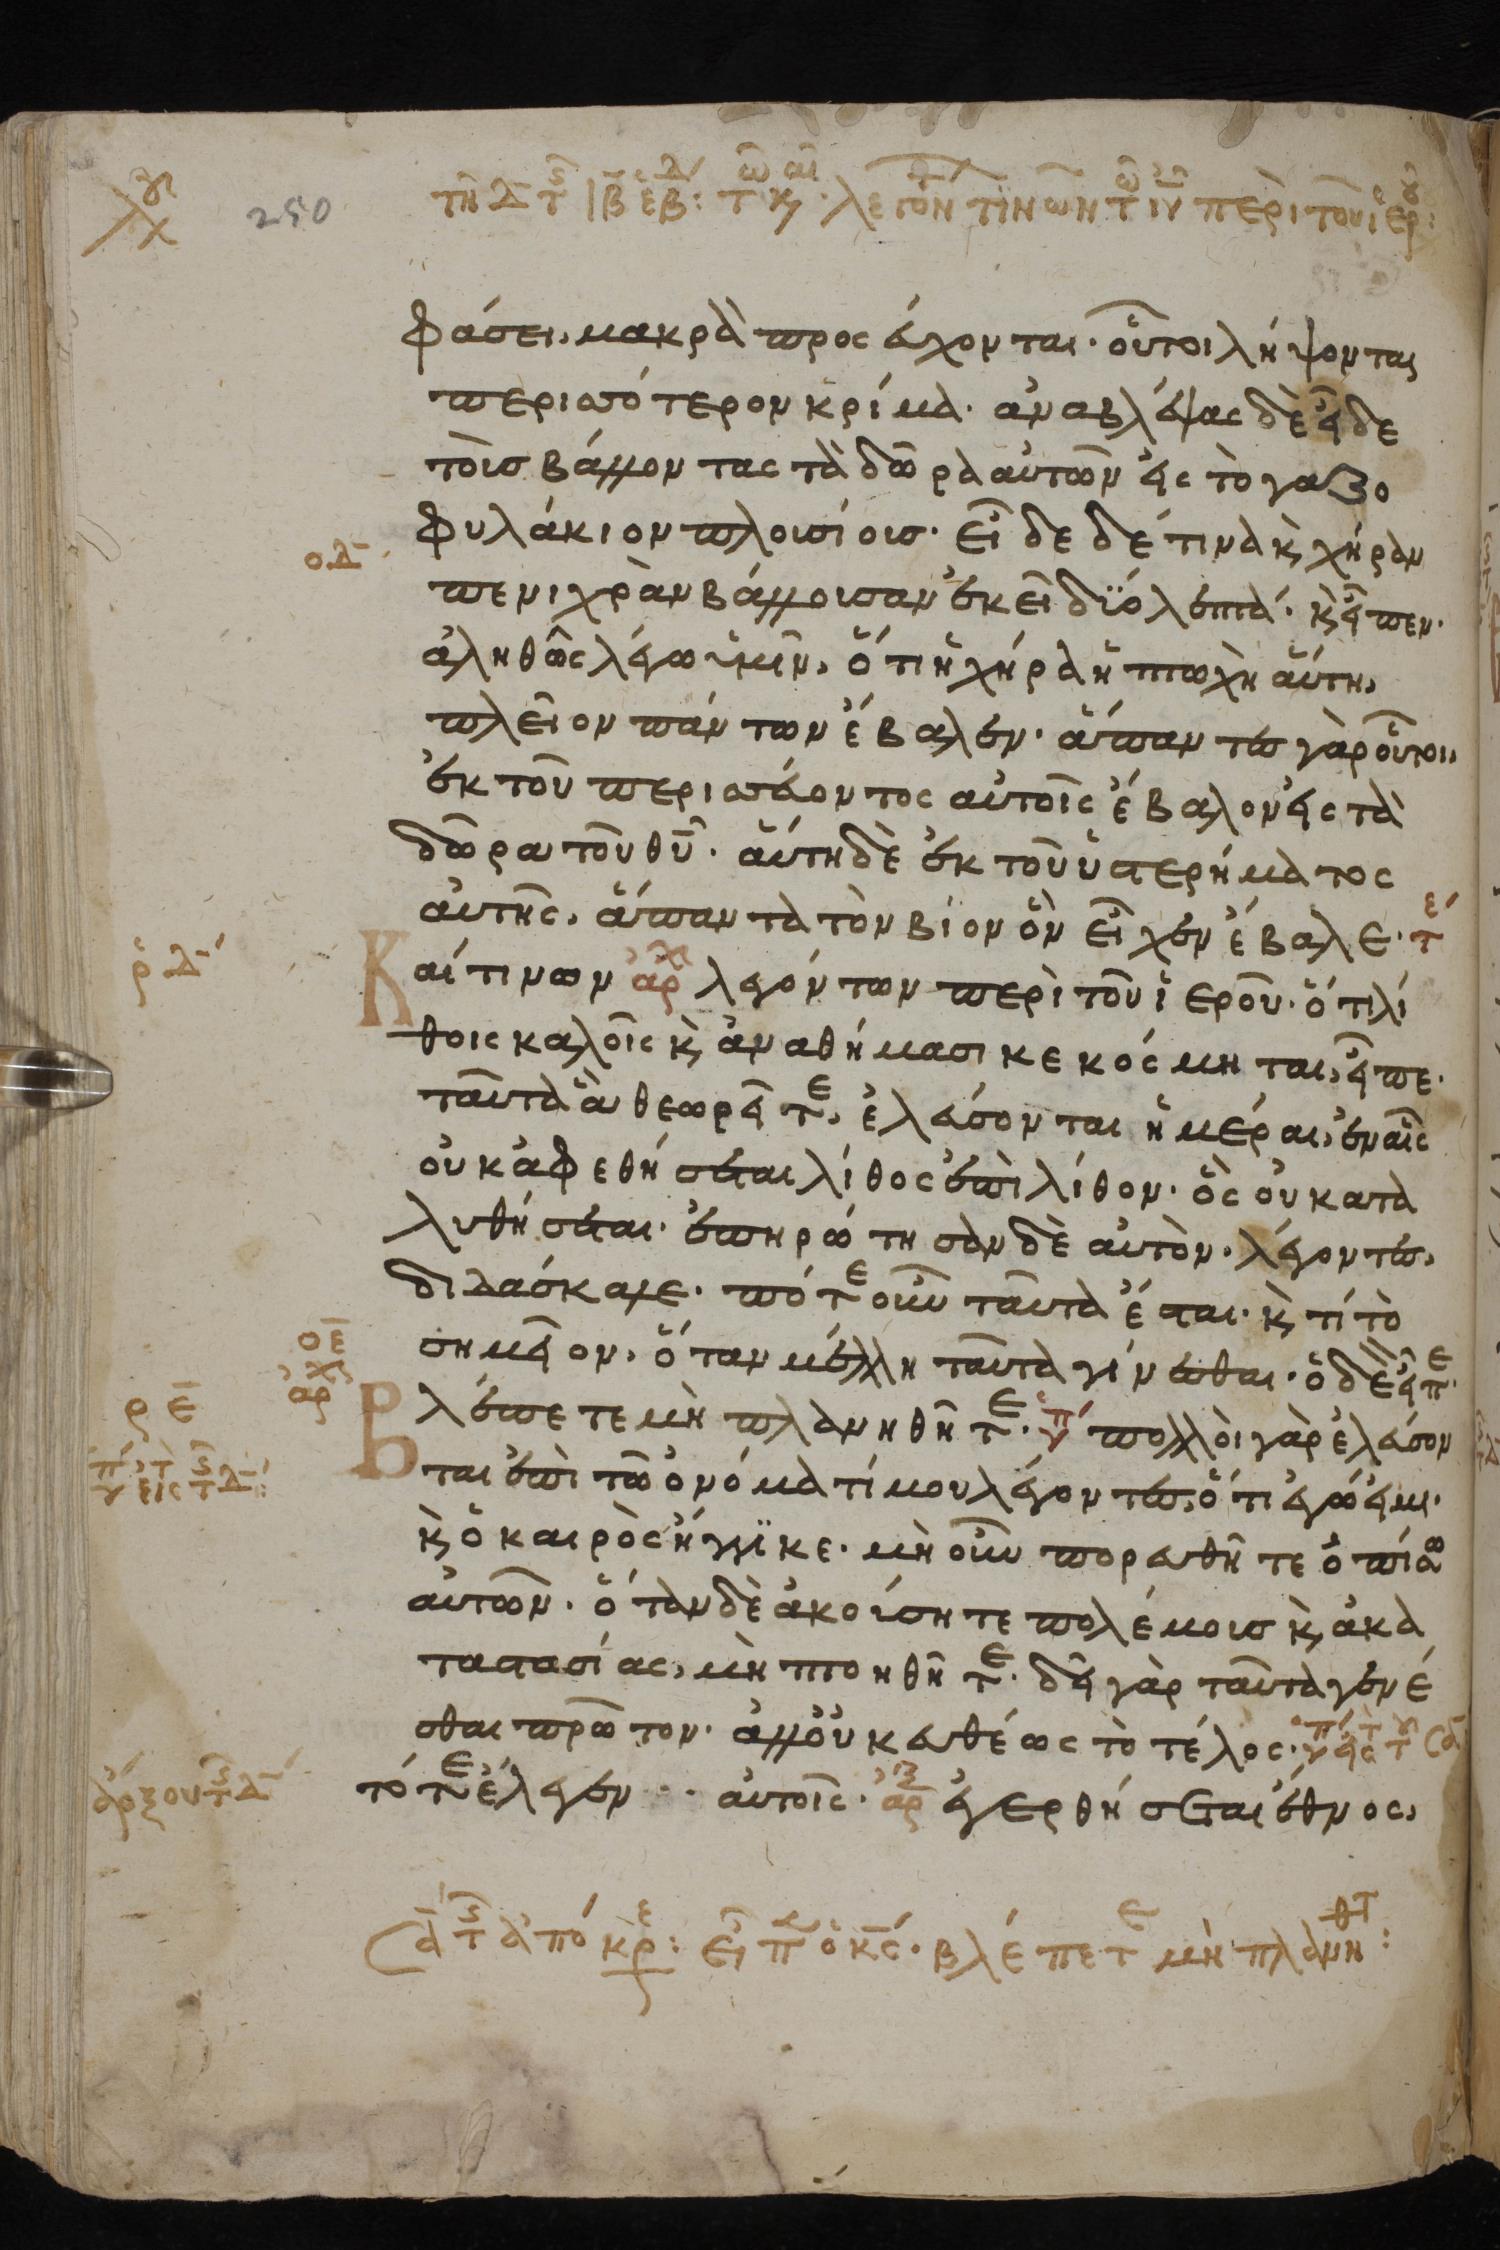 250
φάσει, μακρὰ προσεύχονται· οὗτοι λήψονται
περισσότερον κρίμα· ἀναβλέψας δὲ εἶδε
τοὺς βάλλοντας τὰ δῶρα αὐτῶν εἰς τὸ γαζο
φυλάκιον πλουσίους· εἶδε δέ τινα κ̀ χήραν
πενιχρὰν βάλλουσαν ἐκεῖ δύο λεπτά· κ̀ εἶπεν·
ἀληθῶς λέγω ὑμῖν, ὅτι ἡ χήρα ἡ πτωχὴ αὕτη,
πλεῖον πάντων ἔβαλεν· ἅπαντες γὰρ οὗτοι,
ἐκ τοῦ περισσεύοντος αὐτοῖς ἔβαλον εἰς τὰ
δῶρα τοῦ θῦ· αὕτη δὲ ἐκ τοῦ ὑστερήματος
αὐτῆς, ἅπαντα τὸν βίον ὃν εἶχεν ἔβαλε·
ρ̅δ̅ Καί τινων ἀρχ λεγόντων περὶ τοῦ ἱεροῦ· ὅτι λί
θοις καλοῖς κ̀ ἀναθήμασι κεκόσμηται, εἶπε·
ταῦτα ἃ θεωρεῖτε, ἐλεύσονται ἡμέραι, ἐν αἷς
οὐκ ἀφεθήσεται λίθος ἐπὶ λίθον· ὃς οὐ κατα
λυθήσεται· ἐπηρώτησαν δὲ αὐτὸν, λέγοντες,
διδάσκαλε· πότε οὖν ταῦτα ἔσται· κ̀ τί τὸ
ο̅ε̅ σημεῖον, ὅταν μέλλη ταῦτα γίνεσθαι· ὁ δὲ εἶπε·
ρ̅ε̅ ἀρχ Βλέπετε μὴ πλανηθῆτε· πολλοὶ γὰρ ἐλεύσον
ται ἐπὶ τῶ ὀνόματί μου λέγοντες, ὅτι ἐγώ εἰμι·
κ̀ ὁ καιρὸς ἤγγικε· μὴ οὖν πορευθῆτε ὀπίσω
αὐτῶν· ὅταν δὲ ἀκούσητε πολέμους κ̀ ἀκα
ταστασίας, μὴ πτοηθῆτε· δεῖ γὰρ ταῦτα γενέ
σθαι πρῶτον· ἀλλ' οὐκ εὐθέως τὸ τέλος·
τότε ἔλεγεν αὐτοῖς· ἀρξ ἐγερθήσεται ἔθνος,
εἶπ ὁ κ̅ς̅· βλέπετ μὴ πλανηθτ: